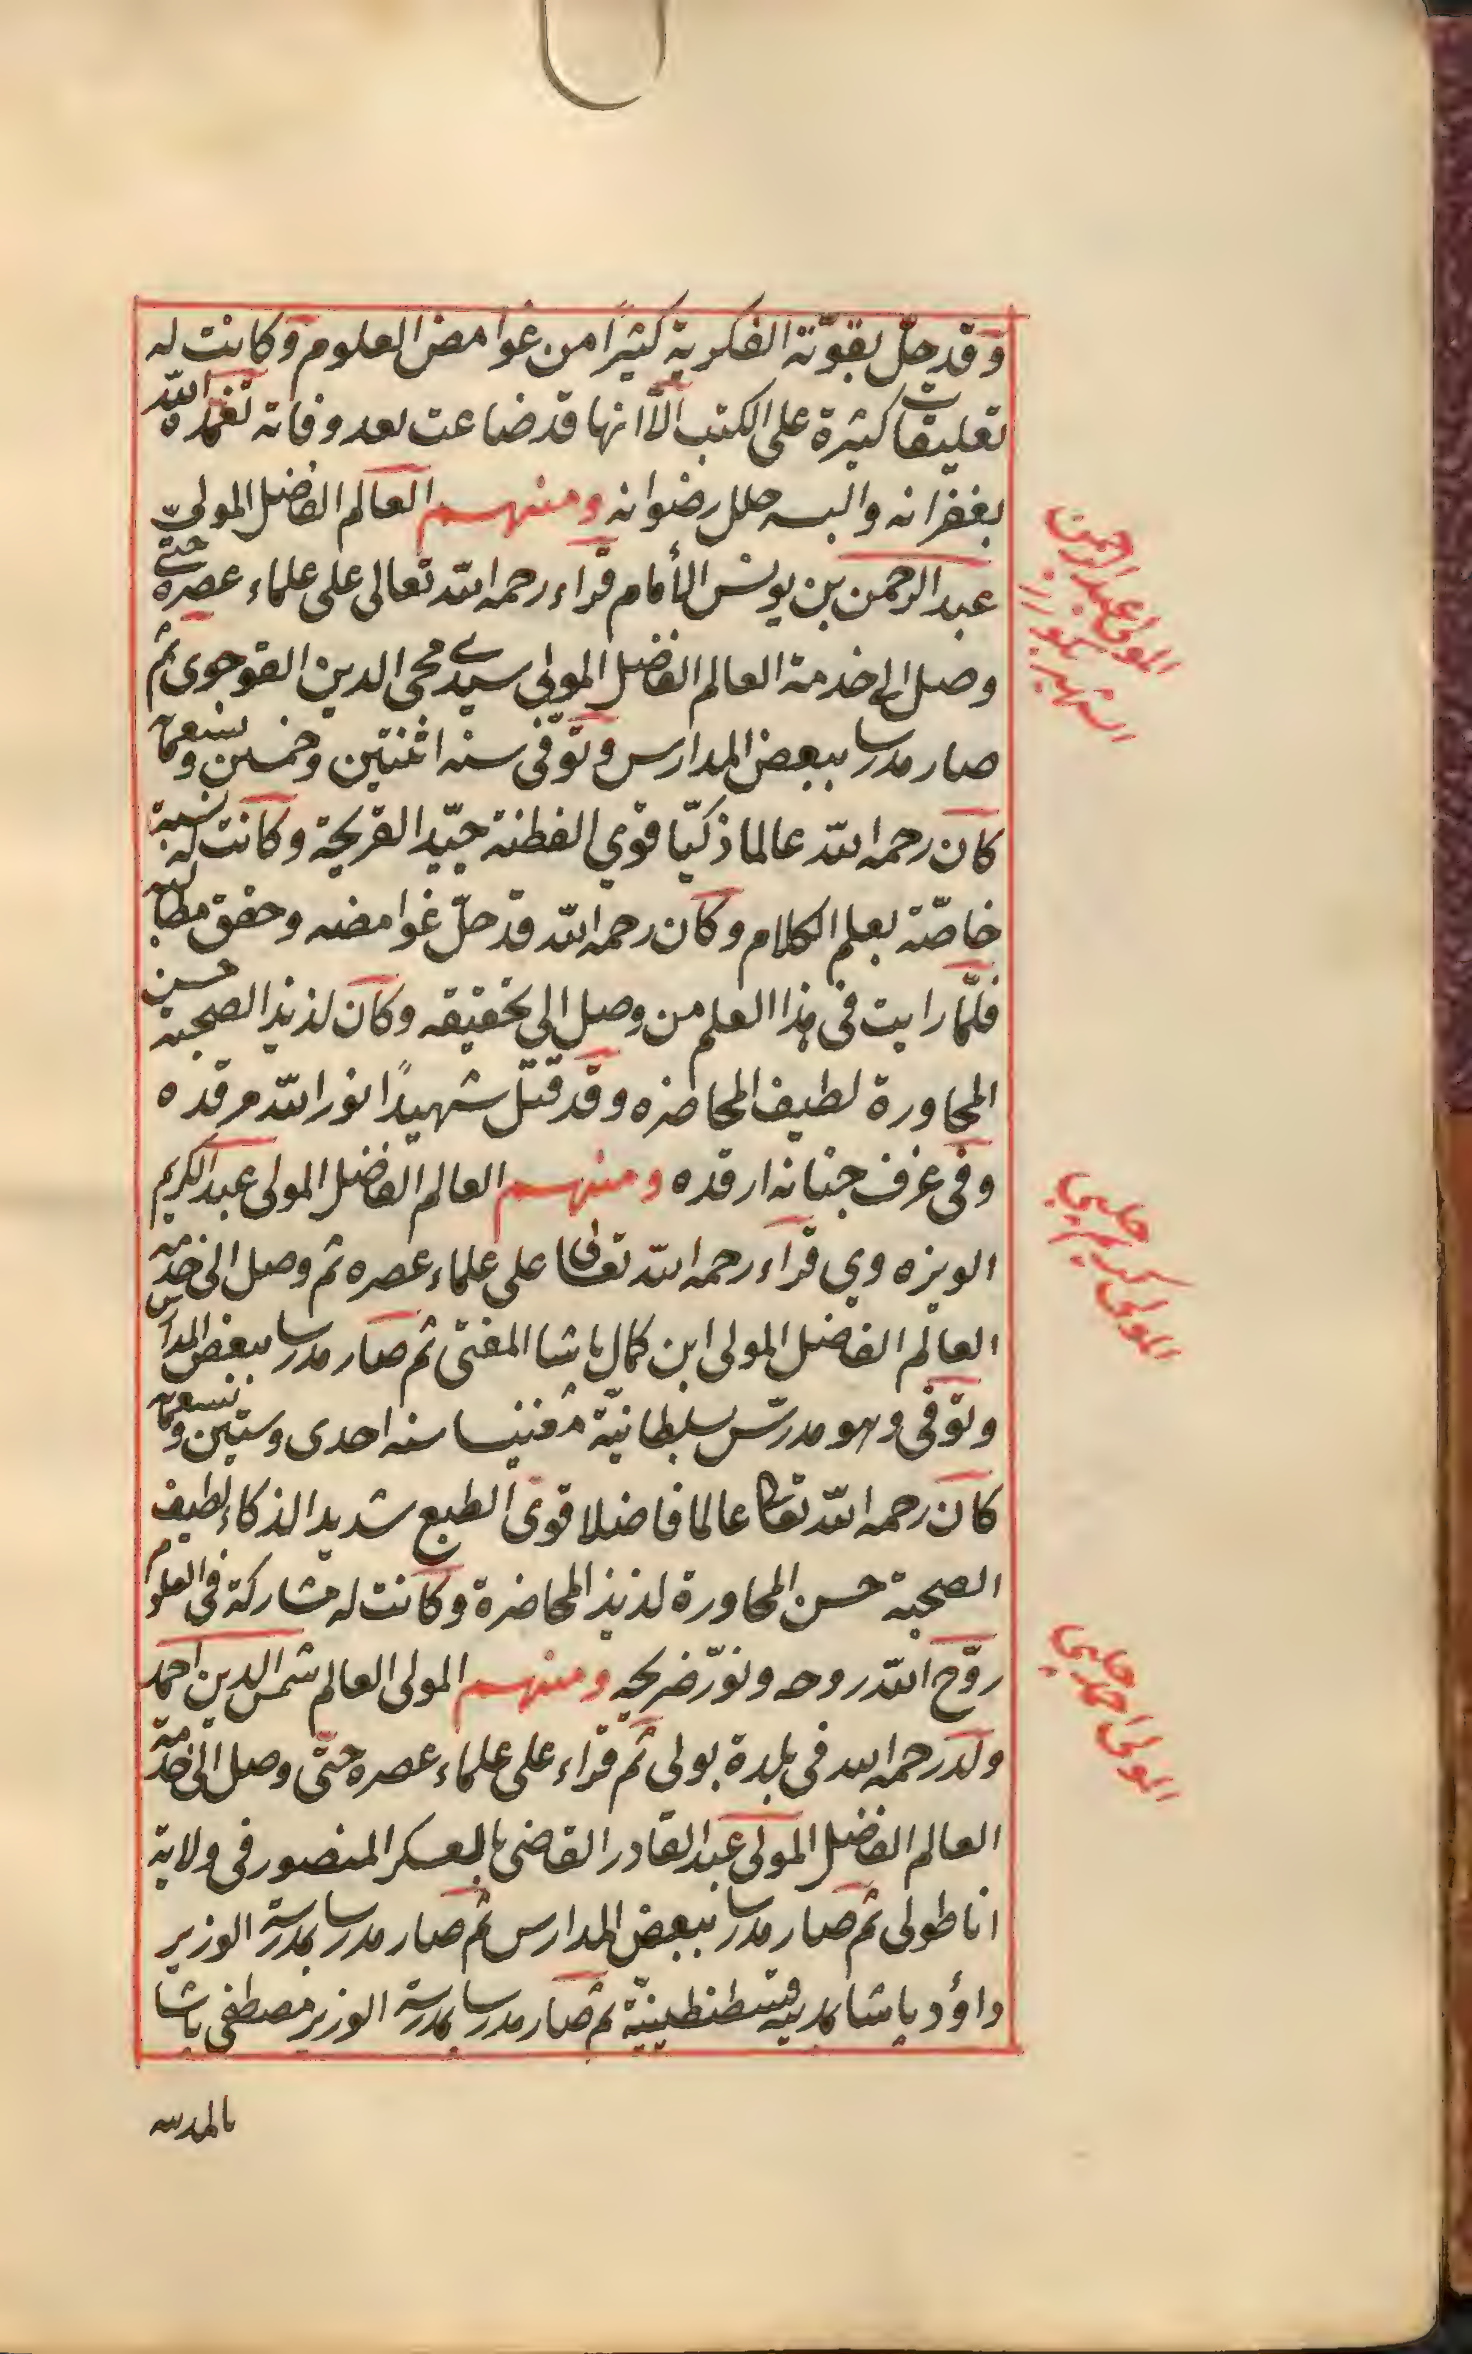 وقد حلّ بقوّته الفكرية كثيرًا من غوامض العلوم وكانت له
تعليقات كثيرة على الكتب الاّ انها قد ضاعت بعد وفاته تغمّده اللّه
بغفرانه والبسه حلل رضوانه ومنهم العالم الفاضل المولى
عبد الرحمن بن يونس الأمام قراء رحمه اللّه تعالى على علماء عصره حتى
وصل الى خدمة العالم الفاضل المولى سيدى محى الدين القوجوى ثم
صار مدرسا ببعض المدارس وتوّفى سنه اثنتين وخمسين وتسعمائة
كان رحمه اللّه عالما ذكيّا قوي الفطنة جيّد القريحة وكانت له نسبة
خاصّة بعلم الكلام وكان رحمه اللّه قد حلّ غوامضه وحقق مطالبه
فلمّا رايت فى هذا العلم من وصل الى تحقيقه وكان لذيذ الصحبة حسن
المحاورة لطيف المحاضره وقد قتل شهيدًا نور اللّه مرقده
وفى غرف جنانه ارقده ومنهم العالم الفاضل المولى عبد الكريم
الويزه وي قراء رحمه اللّه تعالى على علماء عصره ثم وصل الى خدمة
العالم الفاضل المولى ابن كمال باشا المفتى ثم صار مدرسا ببعض المدارس
وتوفى وهو مدرّس بسلطانيّة مغنيسا سنه احدى وستين وتسعمائة
كان رحمه اللّه تعالى عالما فاضلا قوى الطبع شديد الذكاء لطيف
الصحبة حسن المحاورة لذيذ المحاضرة وكانت له مشاركة فى العلوم
روّح اللّه روحه ونوّر ضريحه ومنهم المولى العالم شمس الدين احمد
ولد رحمه الله فى بلدة بولى ثم قراء على علماء عصره حتّى وصل الى خدمة
العالم الفاضل المولى عبد القادر القاضى بالعسكر المنصور فى ولاية
اناطولى ثم صار مدرسا ببعض المدارس ثم صار مدرسا بمدرسة الوزير
داؤد باشا بمدينة قسطنطينيّة ثم صار مدرسا بمدرسة الوزير مصطفى باشا
بالمدرسه
المولى عبد الرحمن
الشهير
المولى كريم چلبى
المولى احمد چلبى